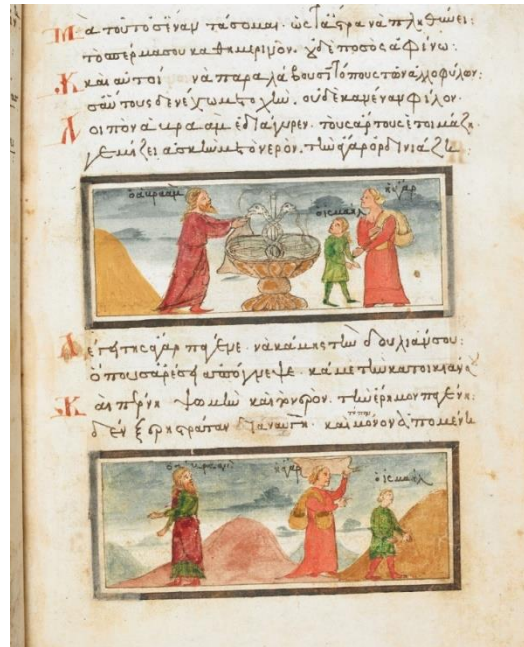 Μα τοῦτο σέναν τάσομαι. ὡς τἄστρα νὰ πληθώνει:
τὸ σπέρμα σου καθημερινόν. δὲ ποσῶς ἀφίνω:
Κ καὶ αὐτοὶ νὰ παραλάβουσι τόπους τῶν ἀλλοφύλων:
σ' αὐτοὺς δὲν ἔχω μετοχὴν. οὐδὲ κανέναν φίλον.
Λοιπὸν ἀβραὰμ ἐδιάγυρεν. τοὺς ἄρτους ἑτοιμάζη
γεμίζει ἀσκὶν μὲ τὸ νερόν. τὴν ἄγαρ ὀρδινιάζει
ὁ ἀβραάμ
ὁ ἰσμαήλ
ἡ ἄγαρ
Λέγει της ἄγαρ πήγαινε. νὰ κάμης τὴν δουλιάν σου:
ὅπου σ' ἀρέσει κάμε τὴν κατοικιάν
Καὶ πέρνη ψωμὶν καὶ νερόν. τὴν ἔρημον πηγένη:
δὲν ξεύρη στράταν καὶ μόνον ἀπομένει
ὁ ἀβραάμ
ἡ ἄγαρ
ὁ ἰσμαήλ